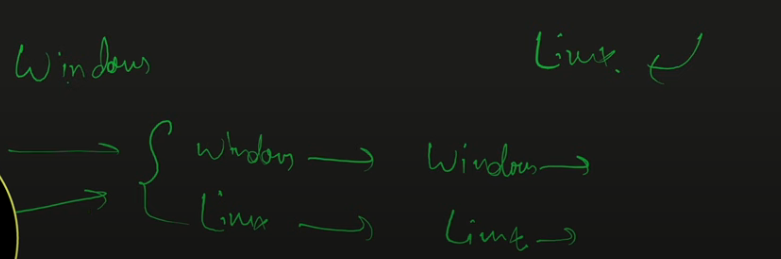 Windows Linux.
Windows → Windows →
Linux → Linux →